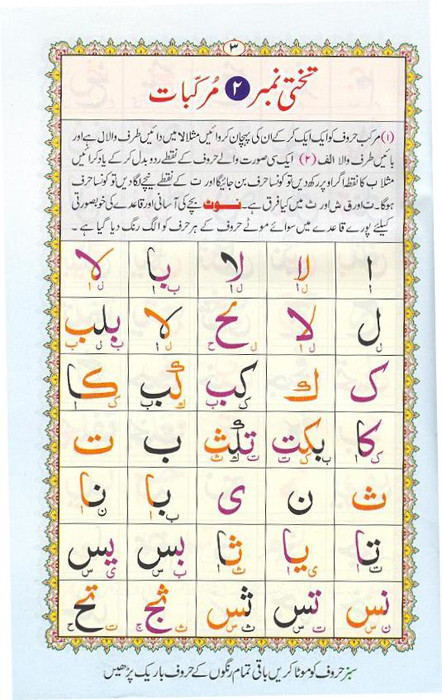 ۳
تختی نمبر ۲ مرکبات
(۱) مرکب حروف کو ایک ایک کر کے ان کی پہچان کروائیں مثلاً لا میں دائیں طرف والا ل ہے اور
بائیں طرف والا الف (۲) ایک سی صورت والے حروف کے نقطے ردوبدل کر کے یاد کرائیں
مثلاً ب کا نقطہ اگر اوپر رکھ دیں تو کونسا حرف بن جائیگا اور ت کے نقطے نیچے لگا دیں تو کونسا حرف
ہوگا۔ ت اور ق ش اور ث میں کیا فرق ہے۔ نوٹ بچے کی آسانی اور قاعدے کی خوبصورتی
کیلئے پورے قاعدے میں سوائے موٹے حروف کے ہر حرف کو الگ رنگ دیا گیا ہے۔
ا لا لا با لا
ل لا لح لا بلب
ک ك کب کب کا
کا بکت تکث ب ت
ث ن ی با نا
تا یا ثا بس یس
نس تس ثس ثج تح
سبز حروف کو موٹا کریں باقی تمام رنگوں کے حروف باریک پڑھیں